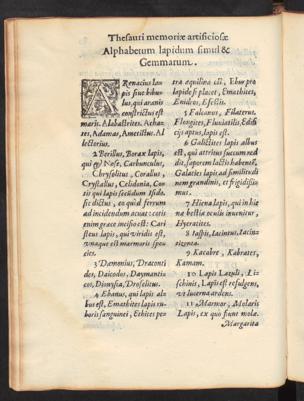 Thesauri memoriæ artificiosæ
Alphabetum lapidum simul &
Gemmarum.
ARenacius lapis siue bibulus, qui arenis
constrictus est
maris. Alabastrites, Achates, Adamas, Ametistus. Alectorius.
2 Berillus, Borax lapis,
Carbunculus,
Chrysolitus, Corallus,
Crystallus, Celidonia,
lapis
sic dictus, eo quòd ferrum
ad incidendum
enim græce
steus lapis, qui viridis est,
vnaque est marmoris species.
3 Dæmonius, Draconti
des, Daicodus, Daymantius
cos, Dionysia, Droselitus.
4 Ebanus, qui lapis
bus est, Emathites lapis
ruboris sanguinei, Echites pe
tra aquilina est, Ebur pro
lapide si placet, Emachites,
Enidros, Efestis.
5 Falcanos, Filaterus,
Fluuialis,
cijs aptus, lapis est.
6 Galictites lapis albus
est, qui attritus succum reddit, saporem lactis habentem,
Galacies lapis ad similitudinem grandinis, et frigidissimus.
7 Hiena lapis, qui in hiena bestia oculis inuenitur,
Hyeracites.
8 Iaspis, Iacintus,
9 Kacabre, Kabrates,
Kamam.
10 Lapis Lazuli,
schinis, Lapis est refulgens,
vt lucerna ardens.
11 Marmor, Molaris
Lapis, ex quo fiunt molæ.
Margarita